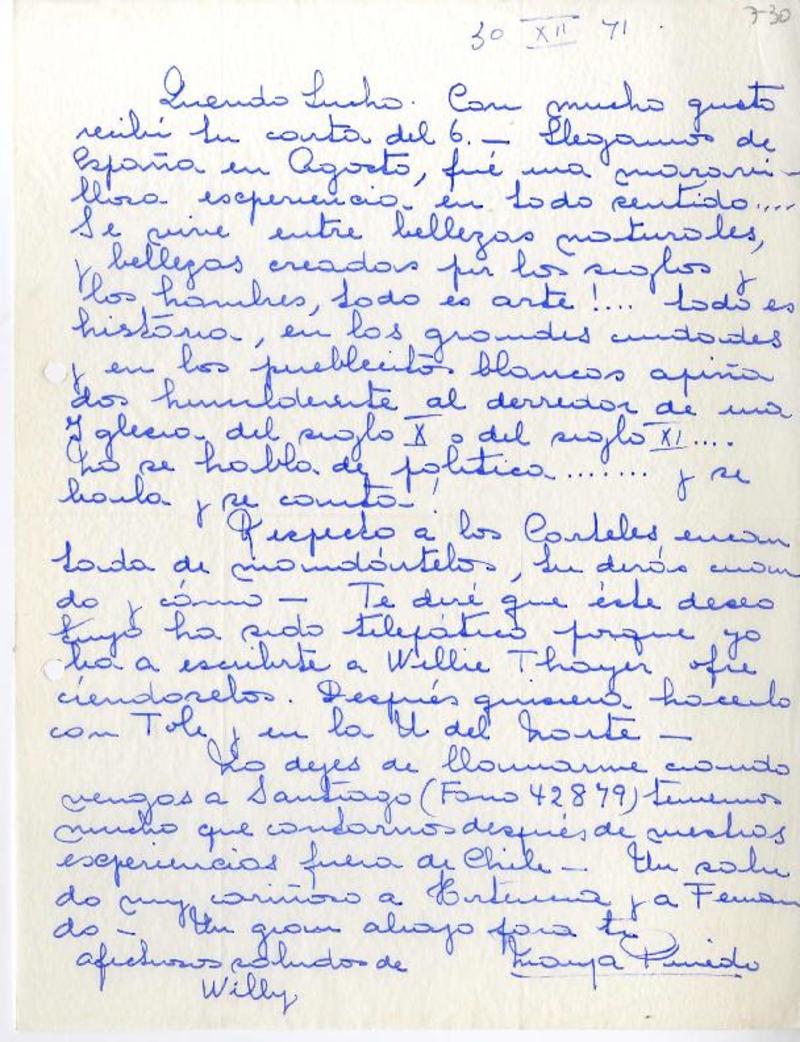 7-30
30 XII 71.
Querido Lucho. Con mucho gusto
recibí tu carta del 6. — Llegamos de
España en Agosto, fué una maravi-
llosa experiencia en todo sentido....
Se vive entre bellezas naturales,
y bellezas creadas por los siglos y
los hombres, todo es arte!... todo es
história, en las grandes ciudades
y en los pueblecitos blancos apiña
dos humildemente al derredor de una
Iglesia del siglo X o del siglo XI....
No se habla de política....... y se
baila y se canta!
Respecto a los Carteles encan
tada de mandártelos, tu dirás cuan
do y cómo — Te diré que éste deseo
tuyo ha sido telepático porque yo
iba a escribirte a Willie Thayer ofre
ciéndoselos. Después quisiera hacerlo
con Tole y en la U del Norte —
No dejes de llamarme cuando
vengas a Santiago (Fono 42879) tenemos
mucho que contarnos después de nuestras
experiencias fuera de Chile — Un salu
do muy cariñoso a Hortensia y a Fernan
do — Un gran abrazo para ti
afectuosos saludos de
Willy
Pinedo